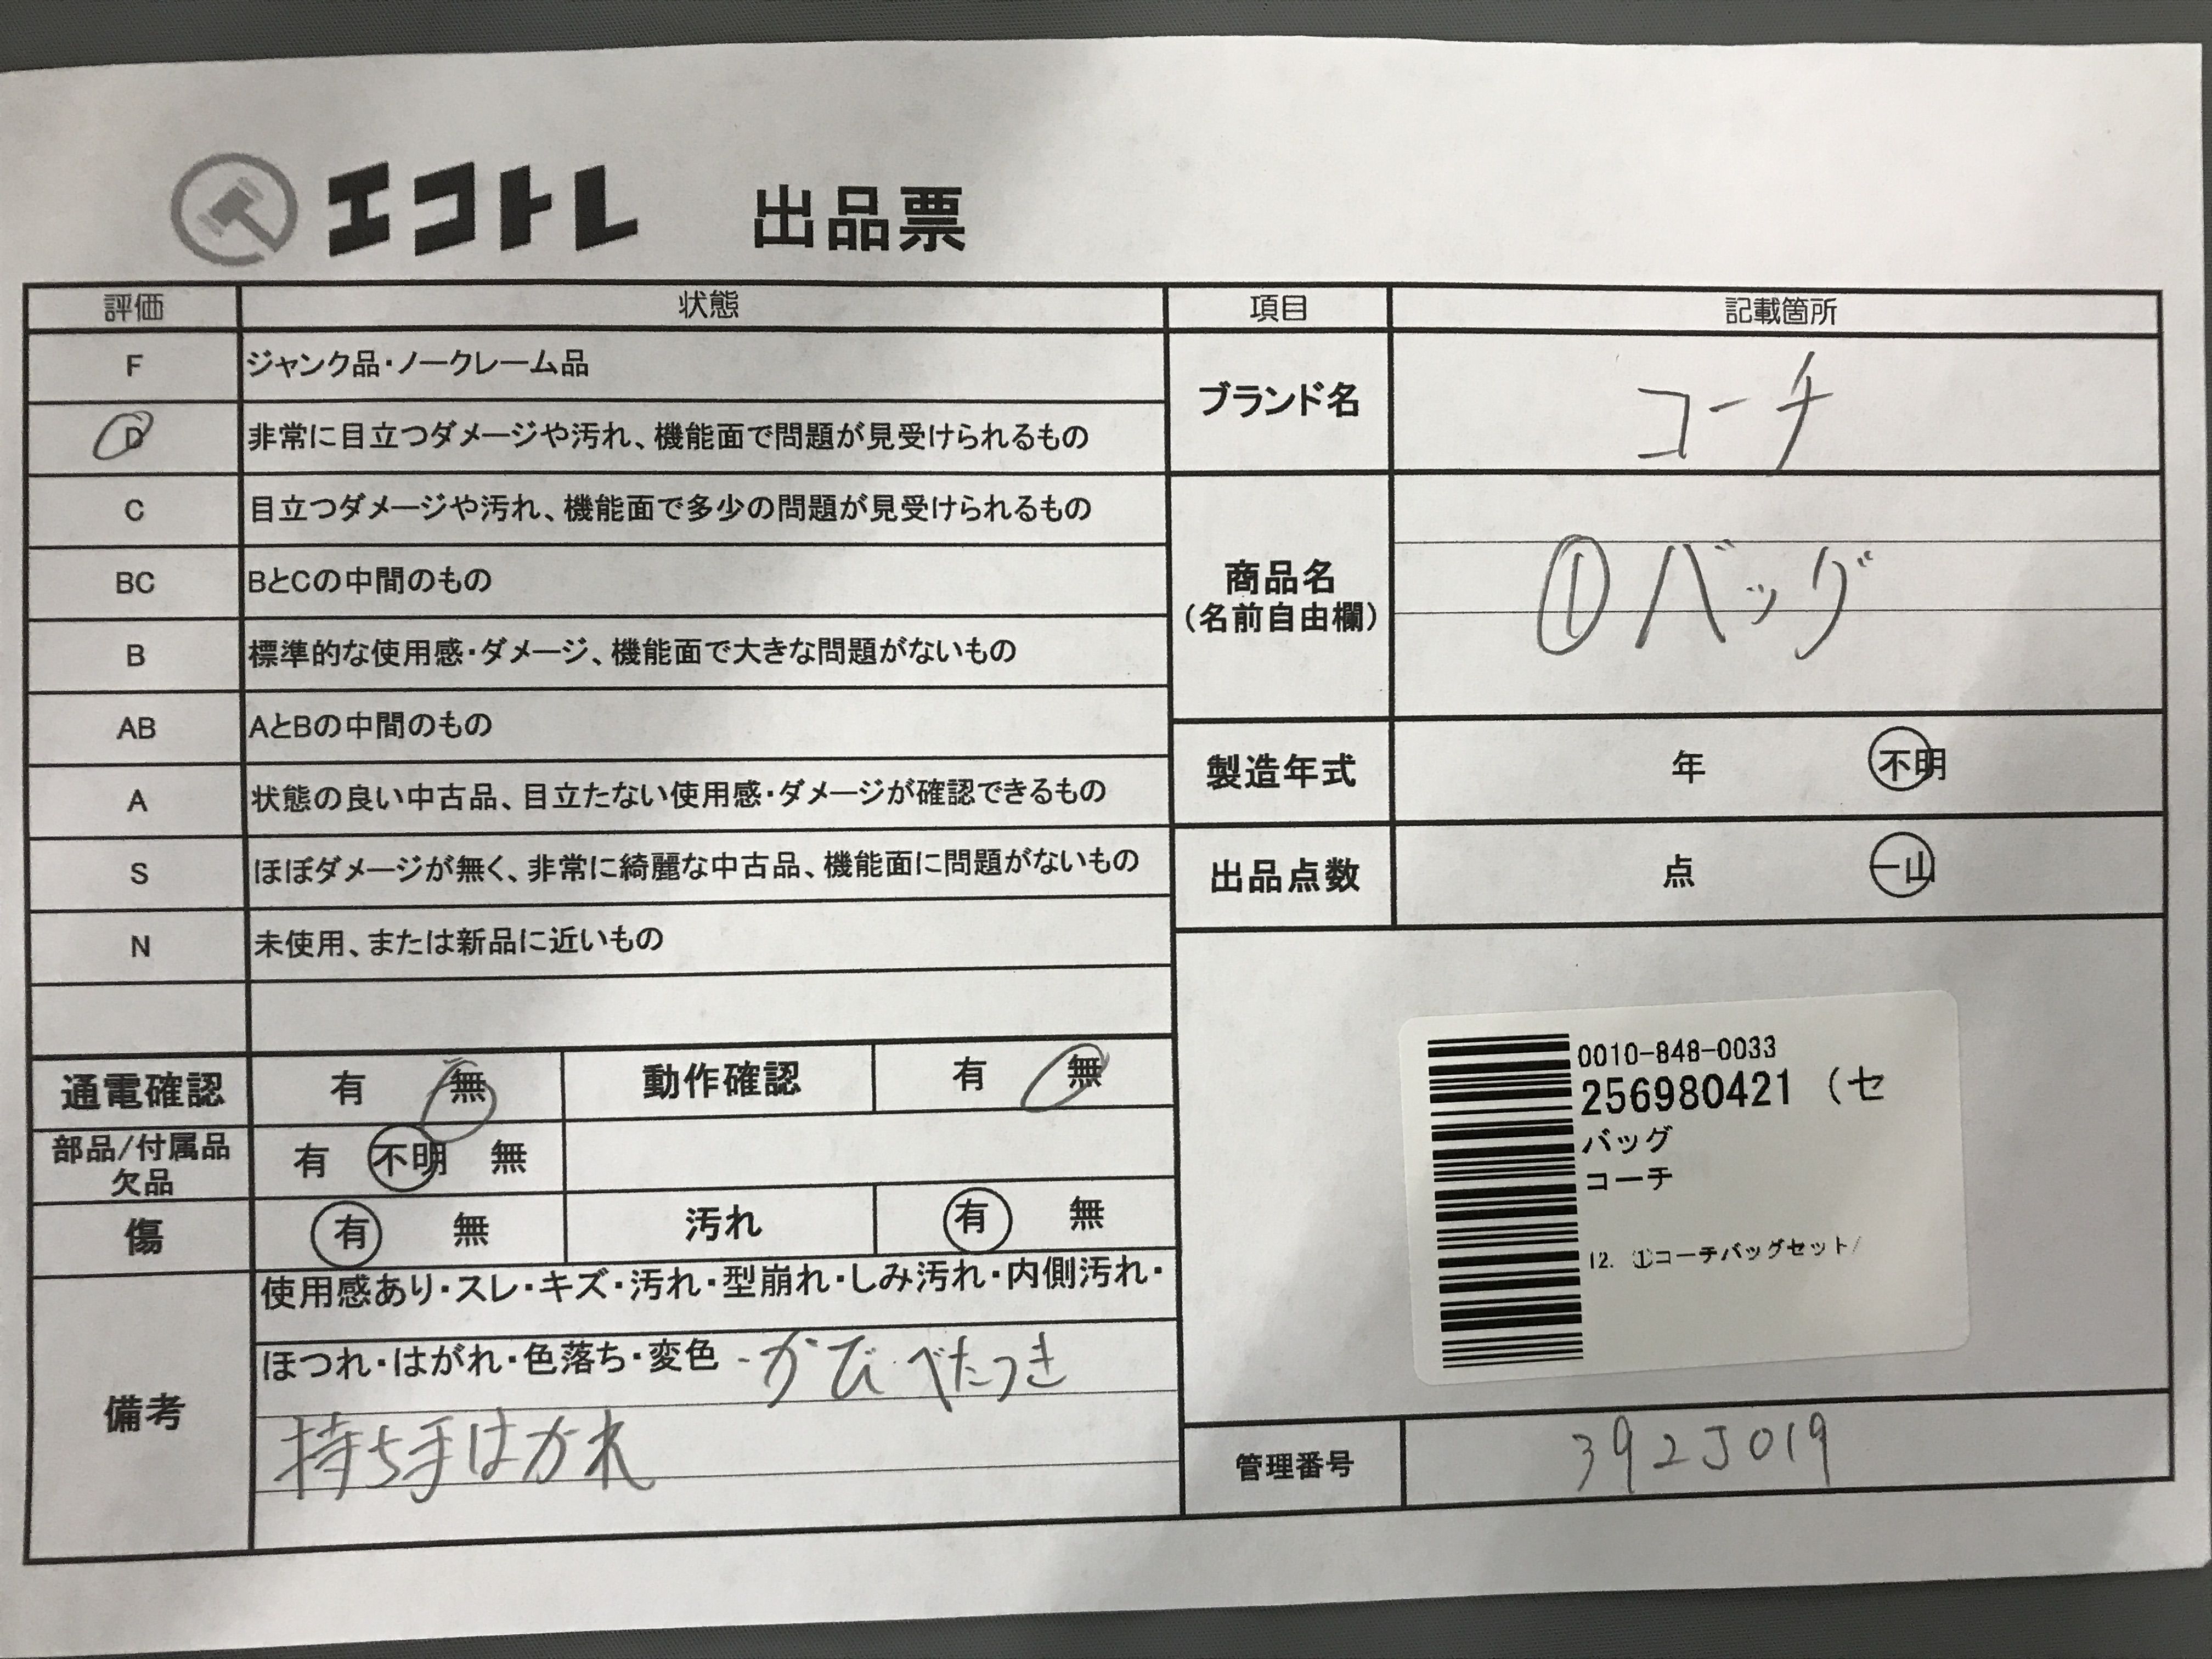 エコトレ 出品票
評価 状態 項目 記載箇所
F ジャンク品・ノークレーム品
D 非常に目立つダメージや汚れ、機能面で問題が見受けられるもの
ブランド名 コーチ
C 目立つダメージや汚れ、機能面で多少の問題が見受けられるもの
BC BとCの中間のもの
商品名
(名前自由欄)
①バッグ
B 標準的な使用感・ダメージ、機能面で大きな問題がないもの
AB AとBの中間のもの
製造年式 年 不明
A 状態の良い中古品、目立たない使用感・ダメージが確認できるもの
出品点数 点 一山
S ほぼダメージが無く、非常に綺麗な中古品、機能面に問題がないもの
N 未使用、または新品に近いもの
通電確認 有 無 動作確認 有 無
部品/付属品
欠品
有 不明 無
傷 有 無 汚れ 有 無
備考
使用感あり・スレ・キズ・汚れ・型崩れ・しみ汚れ・内側汚れ・
ほつれ・はがれ・色落ち・変色 -かび べたつき
持ち手はがれ
0010-848-0033
256980421 (セ
バッグ
コーチ
12. ①コーチバッグセット/
管理番号 392J019